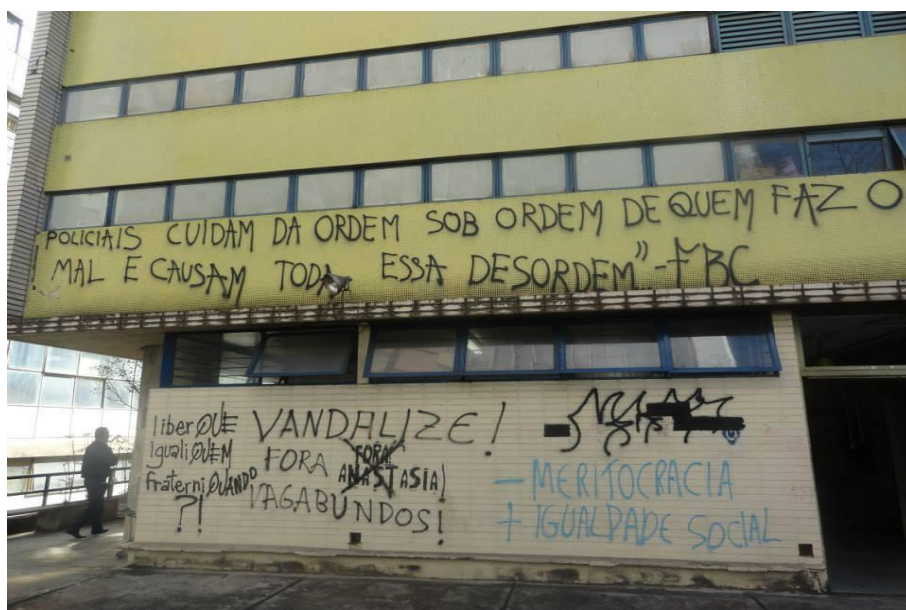 POLICIAIS CUIDAM DA ORDEM SOB ORDEM DE QUEM FAZ O
MAL E CAUSAM TODA ESSA DESORDEM" - FBC
liberQUE
igualiQUEM
fraterniQUANDO
?!
VANDALIZE!
FORA FORA
ANASTASIA!
VAGABUNDOS!
- MERITOCRACIA
+ IGUALDADE SOCIAL